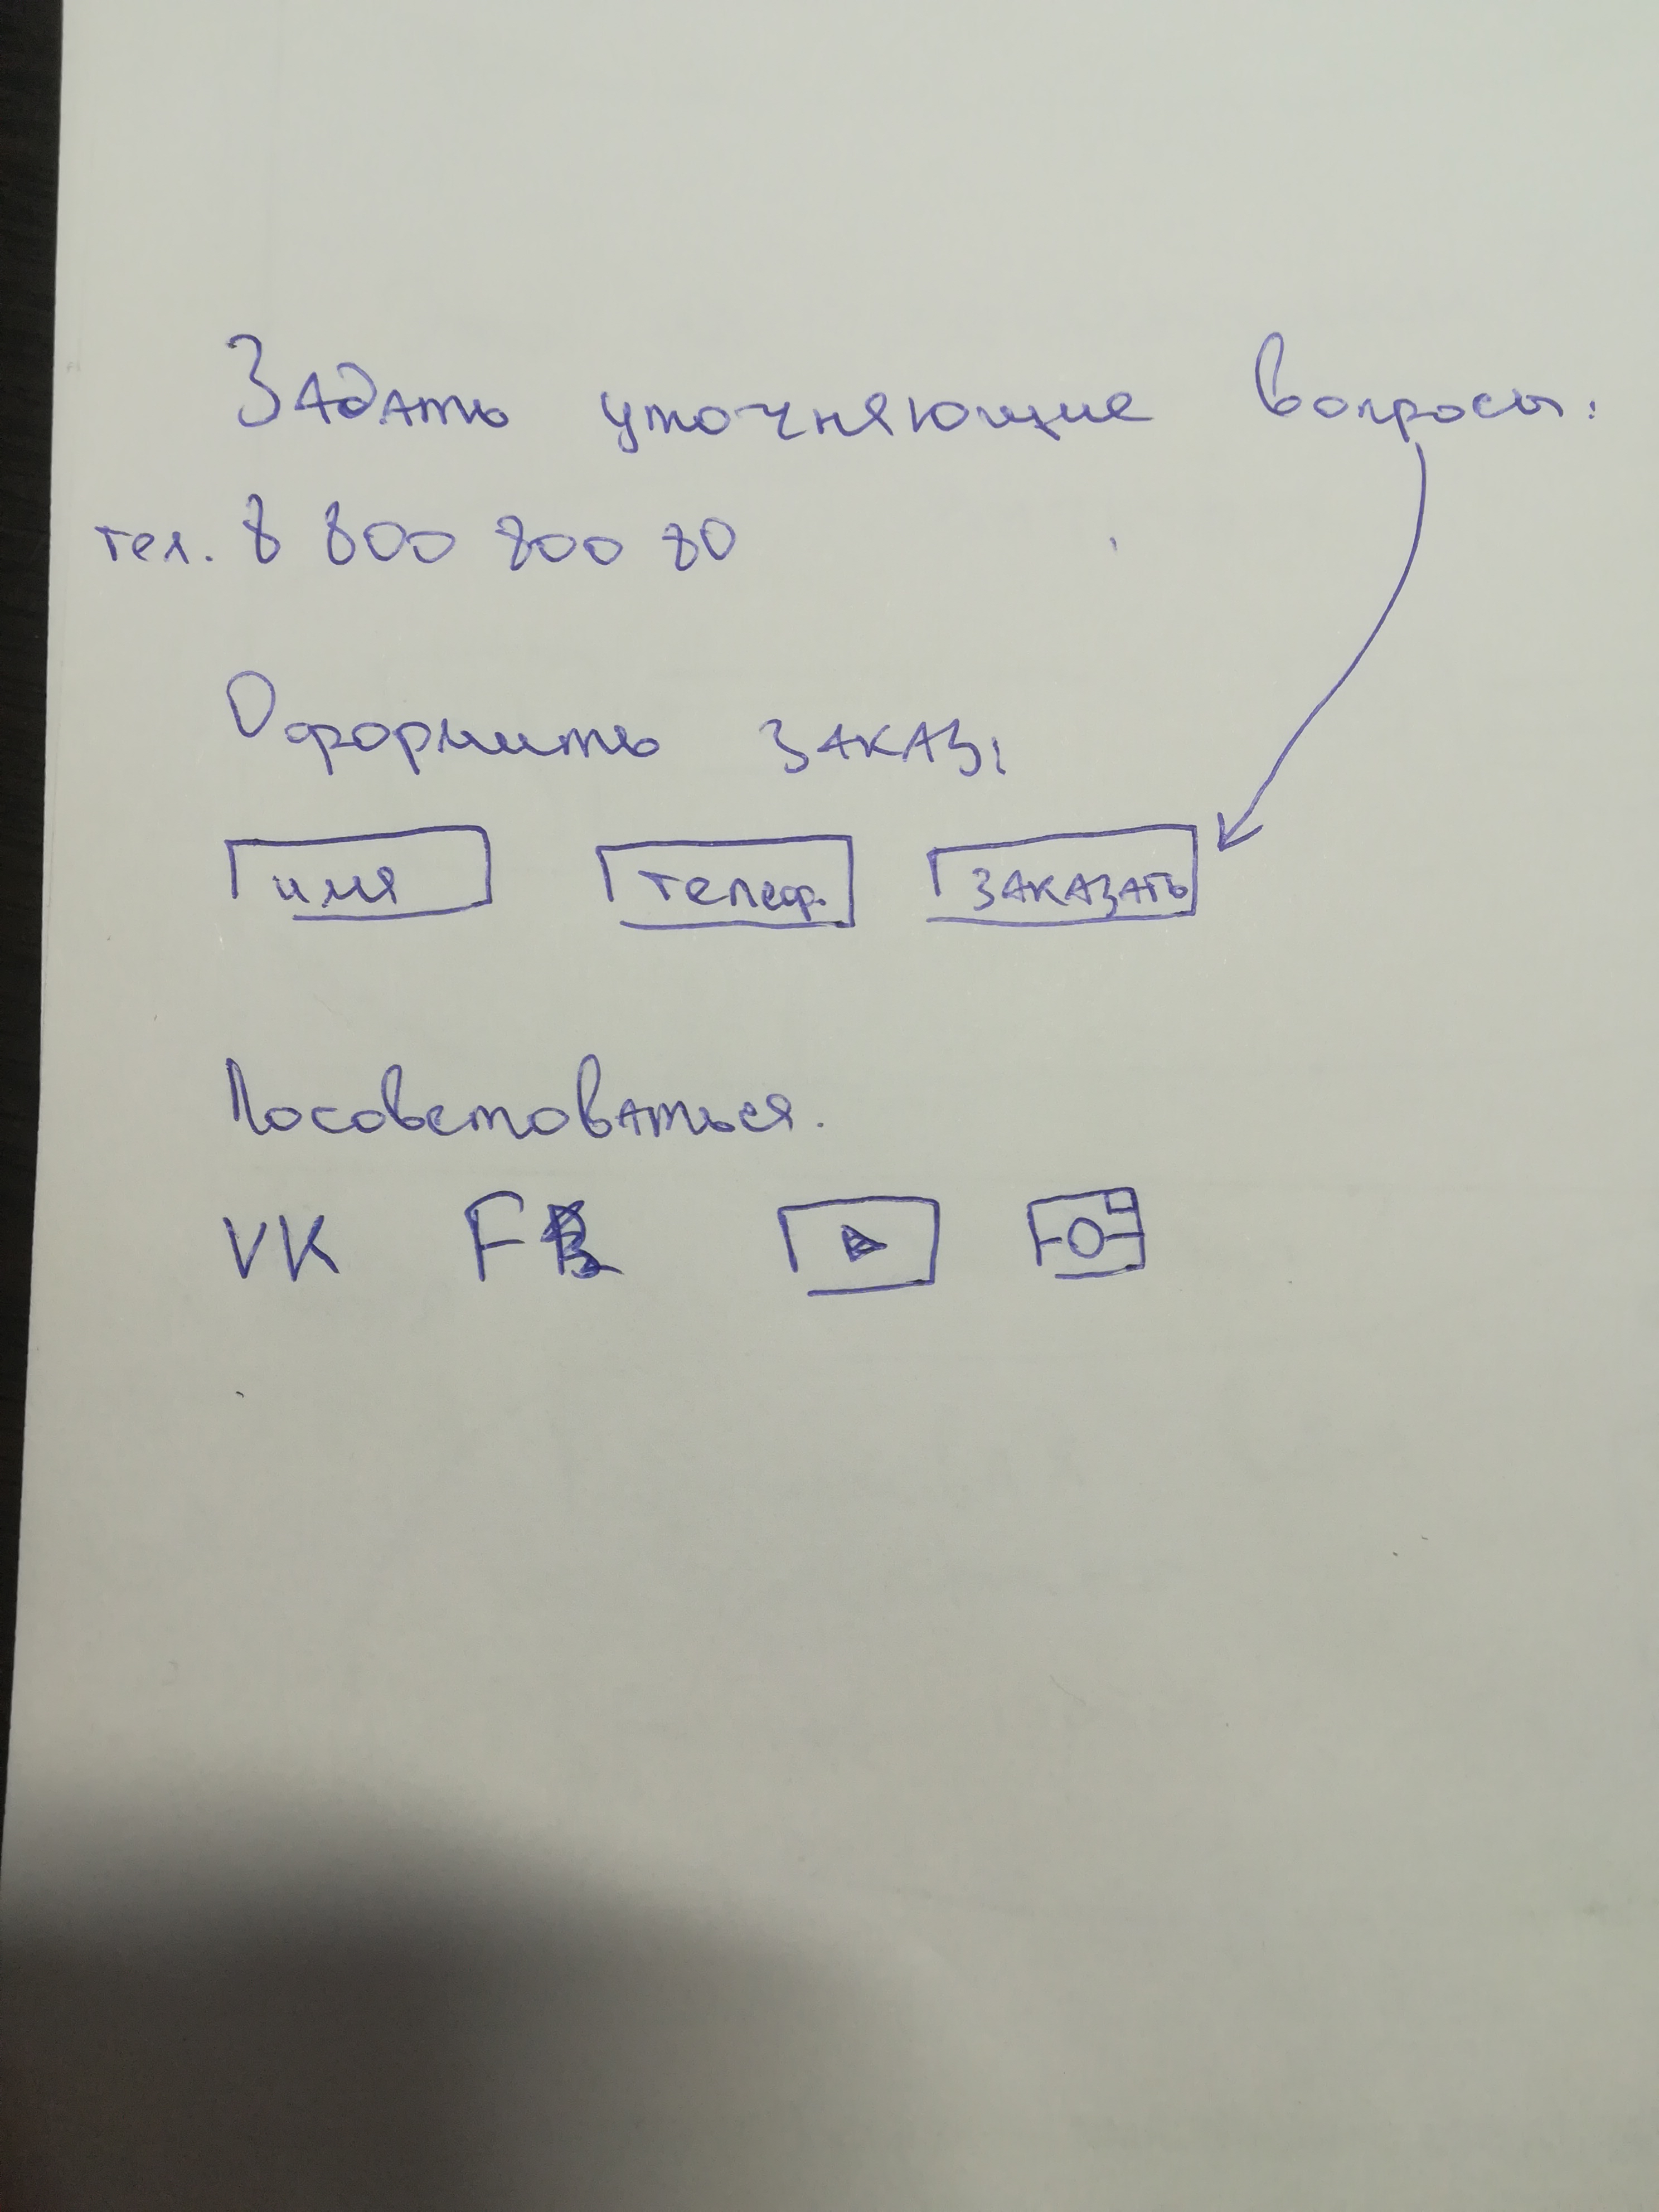 Задать уточняющие вопросы:
тел. 8 800 800 80
Оформить заказ:
имя телеф. заказать
Посоветоваться.
VK F